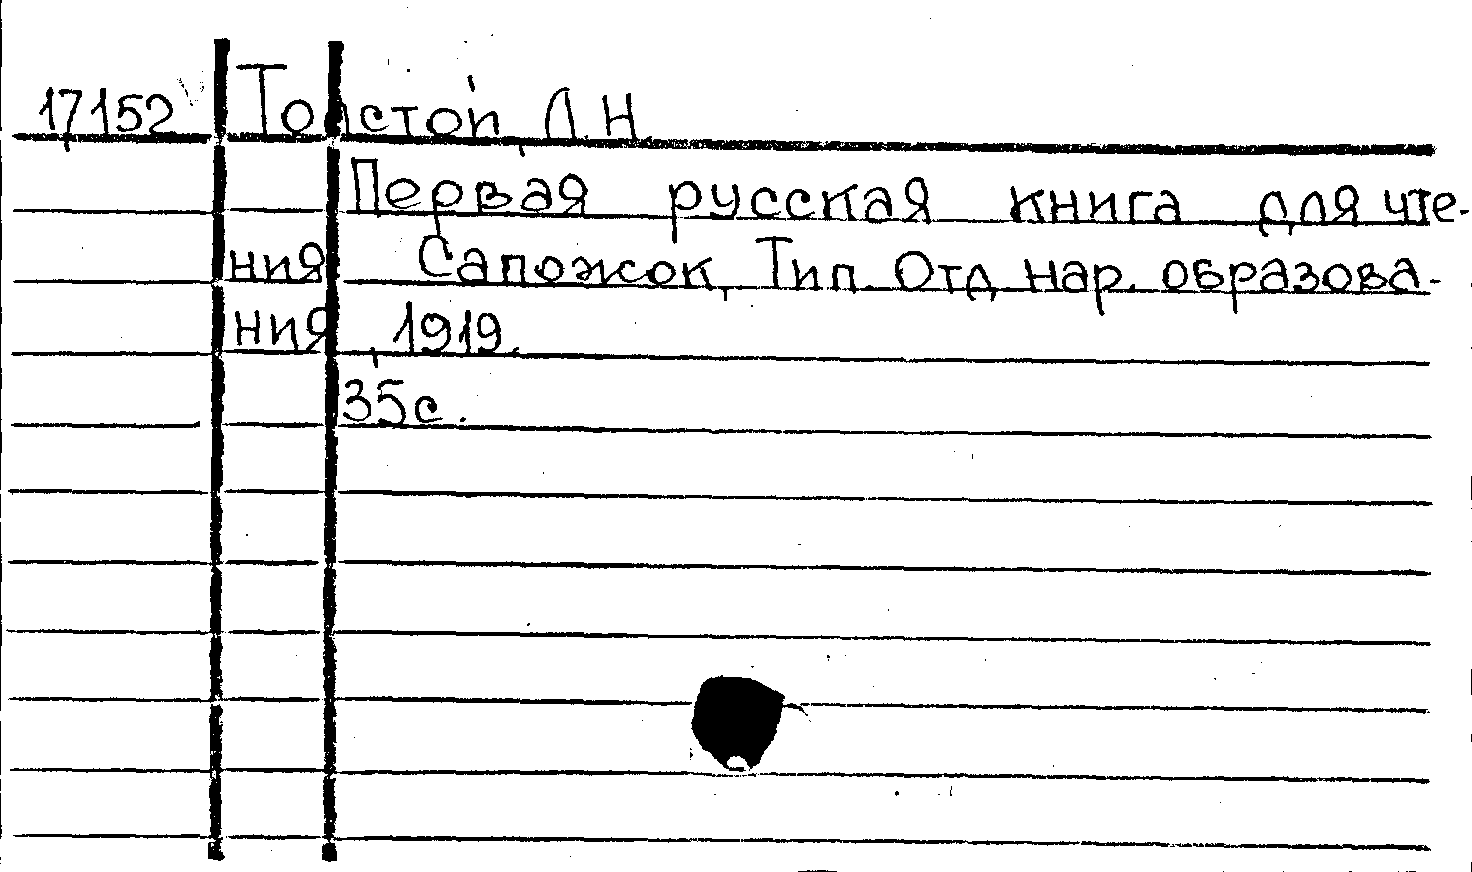 17152 Толстой, Л.Н.
Первая русская книга для чте-
ния. Сапожок, Тип. Отд. нар. образова-
ния, 1919.
35с.